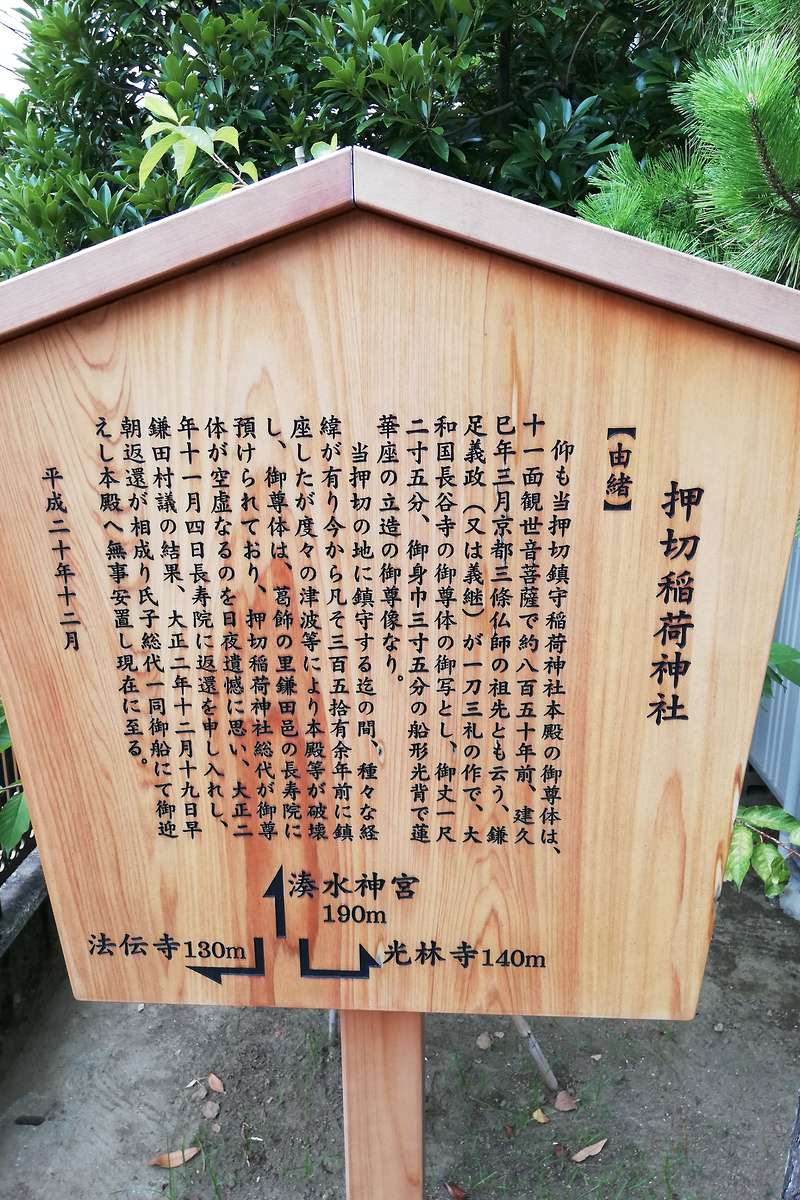 押切稲荷神社
【由緒】
仰も当押切鎮守稲荷神社本殿の御尊体は、
十一面観世音菩薩で約八百五十年前、建久
巳年三月京都三條仏師の祖先とも云う、鎌
足義政（又は義継）が一刀三礼の作で、大
和国長谷寺の御尊体の御写とし、御丈一尺
二寸五分、御身巾三寸五分の船形光背で蓮
華座の立造の御尊像なり。
当押切の地に鎮守する迄の間、種々な経
緯が有り今から凡そ三百五拾有余年前に鎮
座したが度々の津波等により本殿等が破壊
し、御尊体は、葛飾の里鎌田邑の長寿院に
預けられており、押切稲荷神社総代が御尊
体が空虚なるのを日夜遺憾に思い、大正二
年十一月四日長寿院に返還を申し入れし、
鎌田村議の結果、大正二年十二月十九日早
朝返還が相成り氏子総代一同御船にて御迎
えし本殿へ無事安置し現在に至る。
平成二十年十二月
湊水神宮
190m
法伝寺130m
光林寺140m